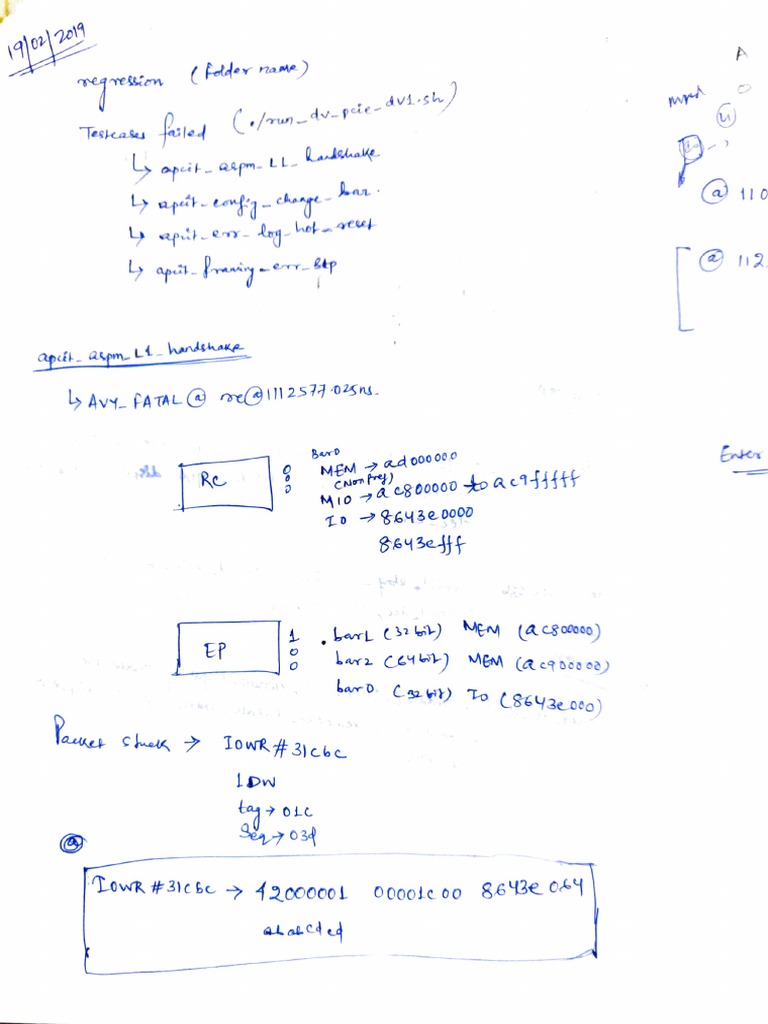 19/02/2019
regression (folder name)
Testcases failed (./run_dv_pcie_dv1.sh)
↳ apcit_aspm_L1_handshake
↳ apcit_config_change_bar.
↳ apcit_err_log_hot_reset
↳ apcit_framing_err_stp
apcit_aspm_L1_handshake
↳ AVY_FATAL @ rc@1112577.025ns.
RC
0
0
0
Bar0
MEM → ad000000
(Non Pref)
MIO → ac800000 to ac9fffff
IO → 8643e0000
8643efff
EP
1
0
0
. bar1 (32bit) MEM (ac800000)
bar2 (64bit) MEM (ac900000)
bar0 (32bit) IO (8643e000)
Packet stuck → IOWR#31cbc
1DW
tag → 01c
Seq → 03d
@
IOWR#31cbc → 42000001 00001c00 8643e064
ababcded
A
0
@ 110
@ 112.
Enter